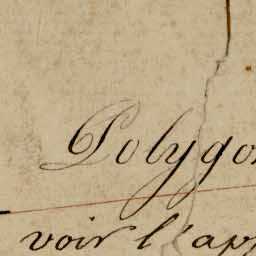 Polygo
voir l'app